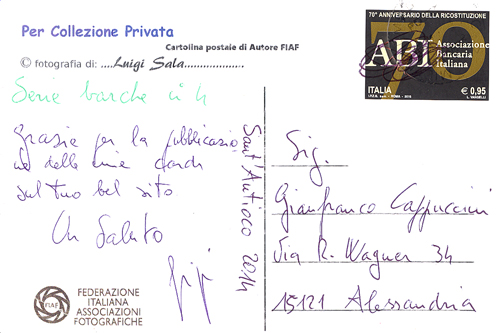 Per Collezione Privata
Cartolina postale di Autore FIAF
© fotografia di: ....Luigi Sala...................
Serie barche in 4
Grazie per la pubblicazio
ne delle mie cards
sul tuo bel sito
Un Saluto
Gigi
FEDERAZIONE
ITALIANA
ASSOCIAZIONI
FOTOGRAFICHE
FIAF
Sant'Antioco 2014
70° ANNIVERSARIO DELLA RICOSTITUZIONE
70
ABI Associazione
Bancaria
Italiana
ITALIA
€ 0,95
Sig.
Gianfranco Cappuccini
Via R. Wagner 34
15121 Alessandria